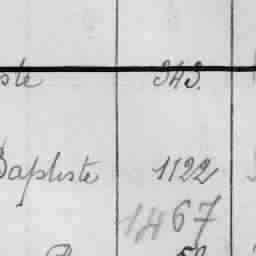 ste 343.
Baptiste 1122
1467